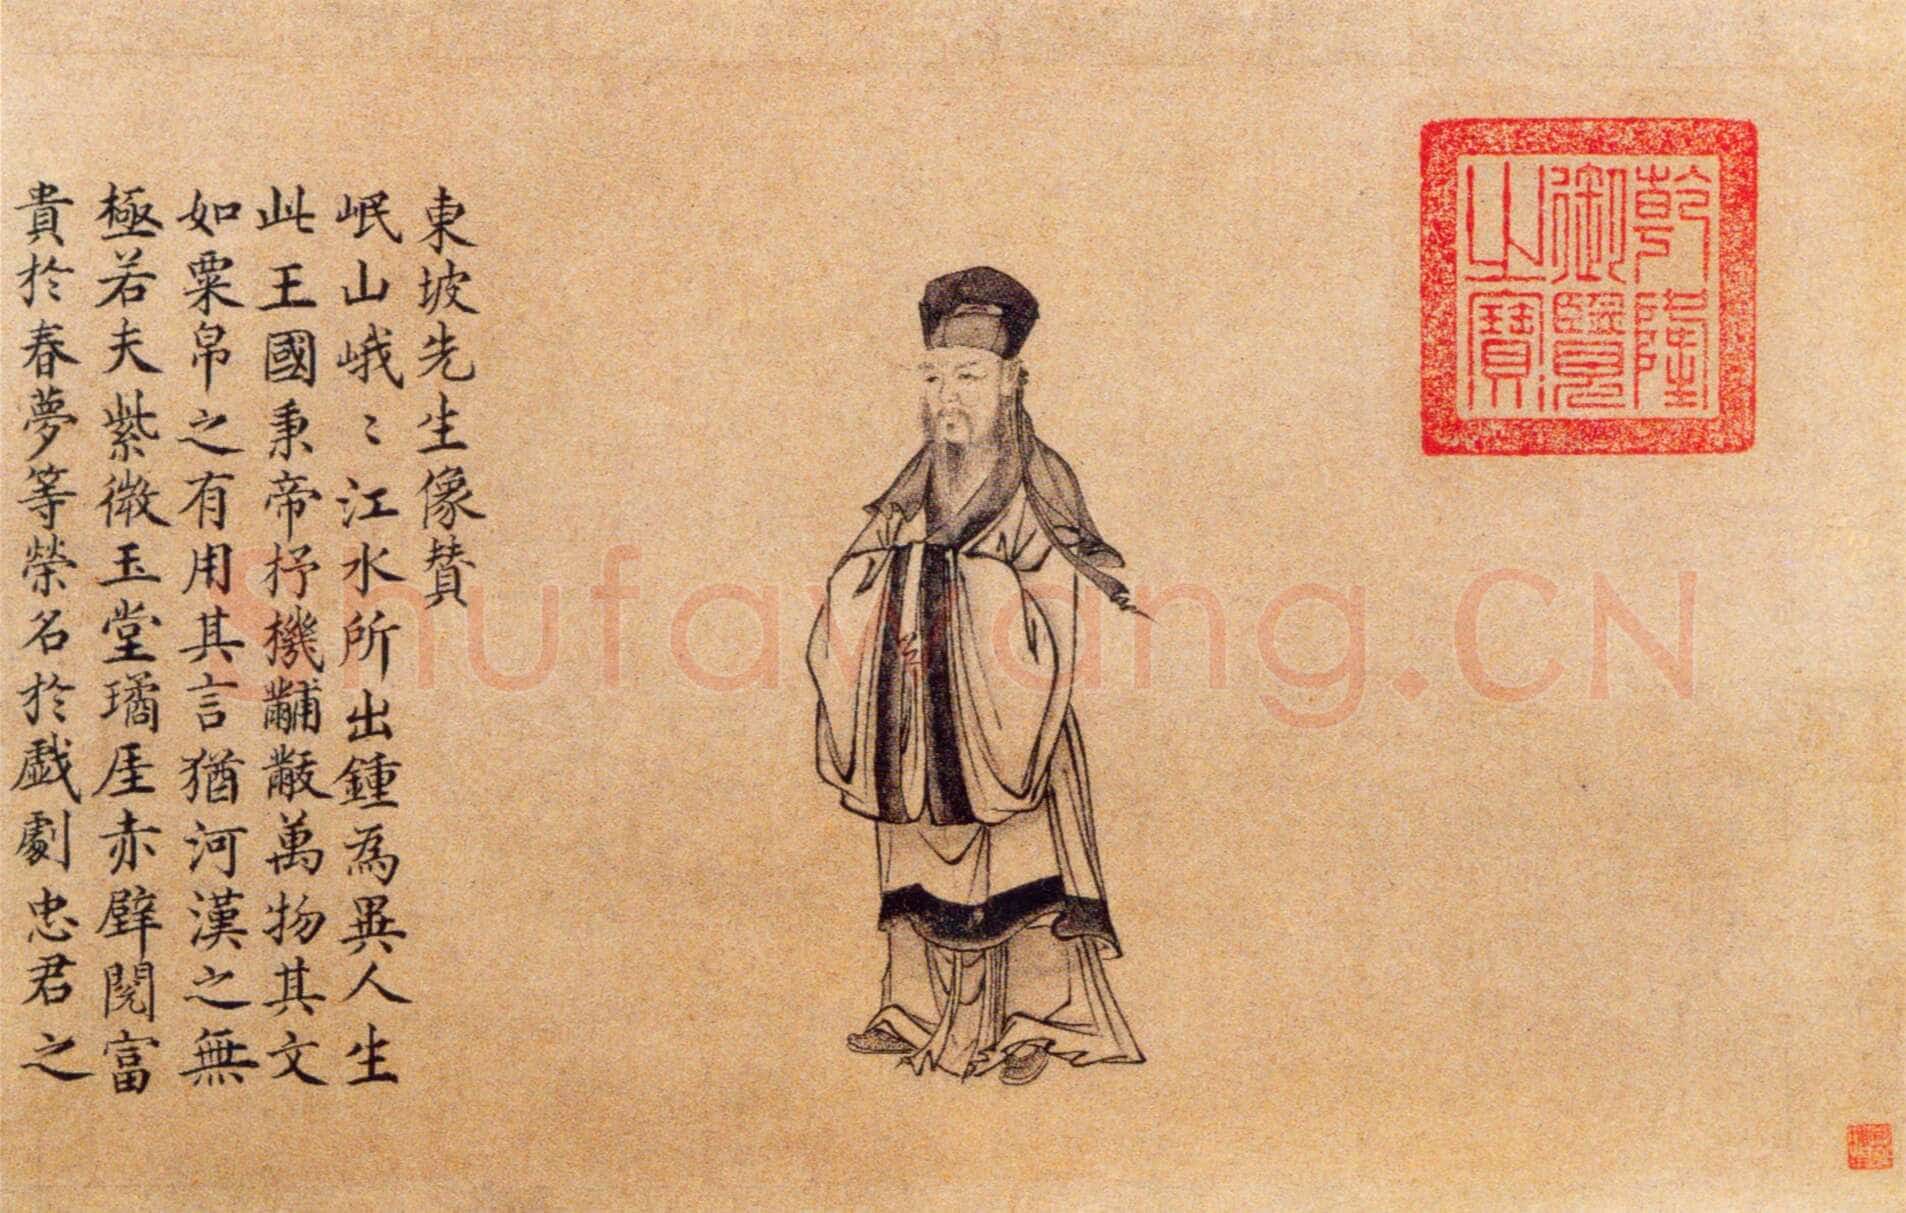 乾隆
御覽
之寶
東坡先生像賛
岷山峨〻江水所出鍾為異人生
此王國秉帝杼機黼黻萬物其文
如粟帛之有用其言猶河漢之無
極若夫紫微玉堂璚厓赤壁閱富
貴於春夢等榮名於戯劇忠君之
Shufawang.CN